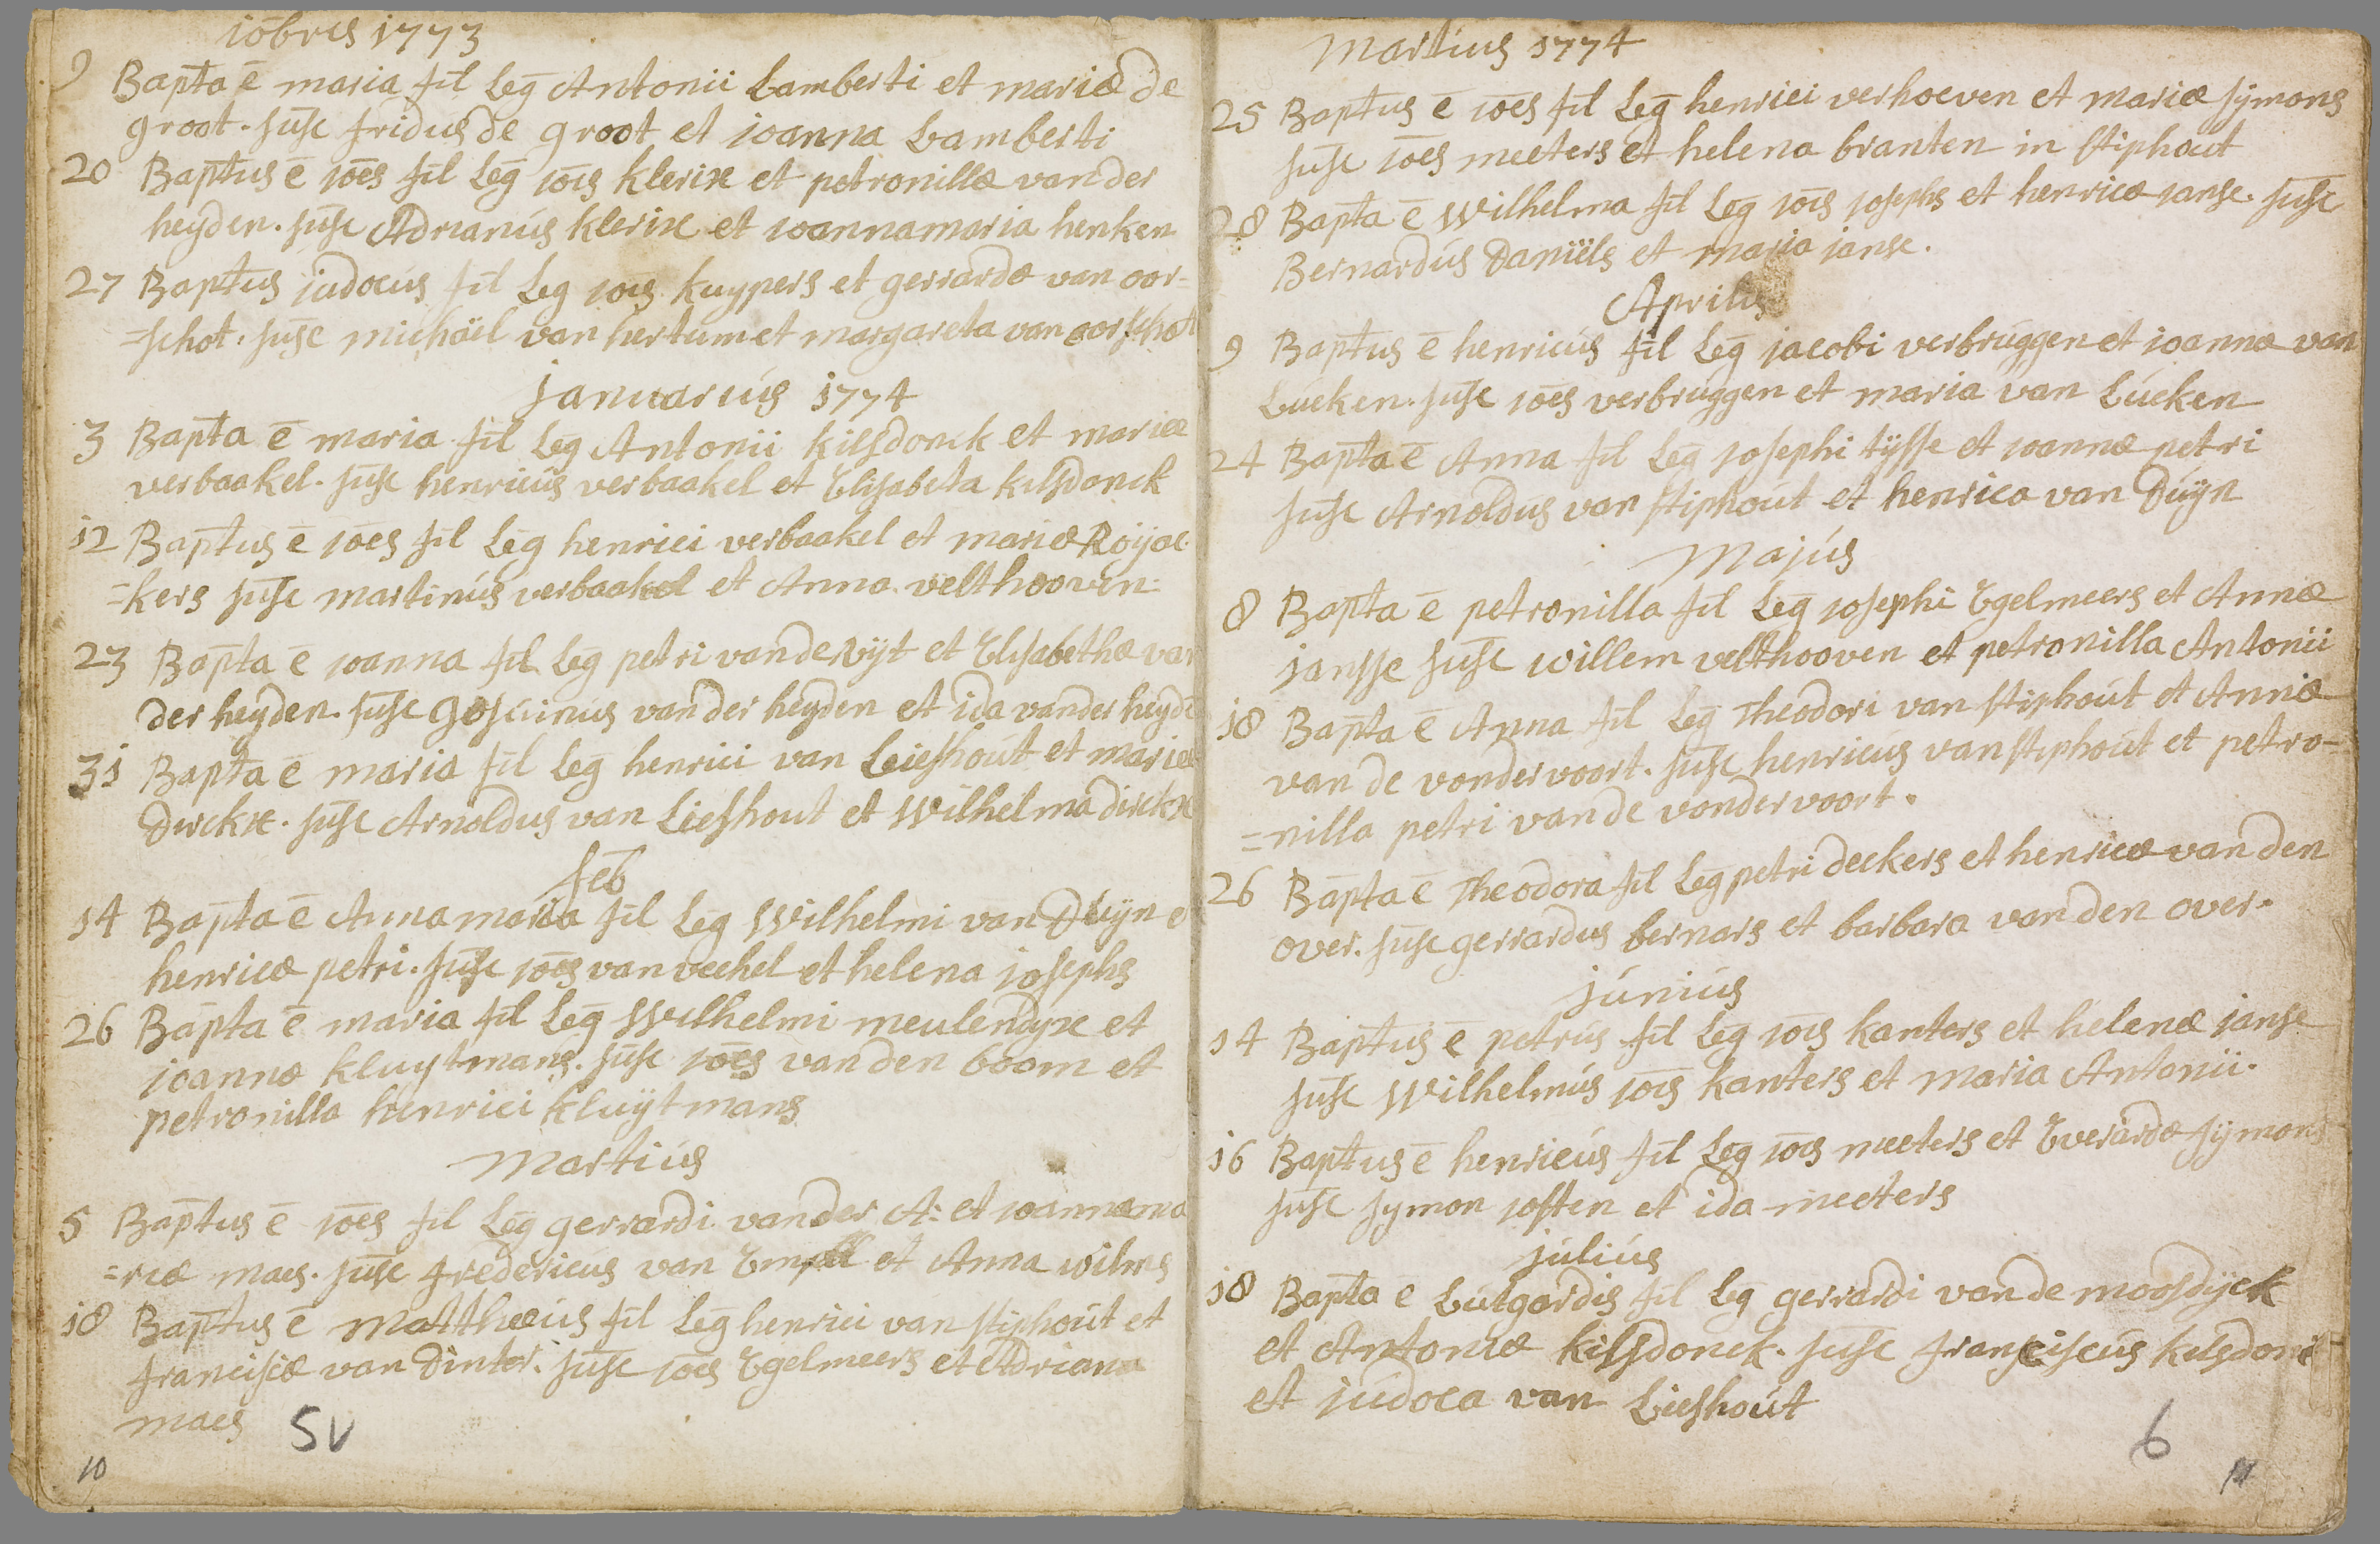 10bris 1773
9 Bapta ē maria fil Leg Antonii Lamberti et mariæ de
groot. suſc fridus de groot et joanna Lamberti
20 Baptus ē joēs fil Leg joīs klerix et petronillæ vander
heyden. suſc Adrianus klerix et joannamaria henken
27 Baptus judocus fil Leg joīs kuypers et gerrardæ van oor=
=schot. suſc michäel van hertum et margareta van oorschot
januarius 1774
3 Bapta ē maria fil Leg Antonii kilsdonck et mariæ
verbaakel. suſc henricus verbaakel et Elisabeta kilsdonck
12 Baptus ē joēs fil Leg henrici verbaakel et mariæ Roijac
=kers suſc martinus verbaakel et Anna velthooven
23 Bapta ē joanna fil Leg petri vande vijt et Elisabethæ van
der heyden. suſc Gosuinus vander heyden et ida vander heyde
31 Bapta ē maria fil Leg henrici van Leieshout et mariæ
Dirckx. suſc Arnoldus van Lieshout et Wilhelma dirckx
feb
14 Bapta ē Anna maria fil Leg Wilhelmi van Duijn et
henricæ petri. suſc joēs van veehel et helena josephs
26 Bapta ē maria fil Leg Wilhelmi meulendyx et
joannæ kluytmans. suſc joēs van den boom et
petronilla henrici kluijtmans
Martius
5 Baptus ē joēs fil Leg gerrardi vander A: et joannæma
=riæ maes. suſc fredericus van Empel et Anna wilms
18 Baptus ē Mattheus fil Leg henrici van stiphout et
franciscæ van Dinter. suſc joēs Egelmeers et Adriana
maes
5V
10
Martius 1774
25 Baptus ē joēs fil Leg henrici verhoeven et mariæ sijmons
suſc joēs meeters et helena branten in stiphout
28 Bapta ē Wilhelma fil Leg joīs josephs et henricæ janse. suſc
Bernardus Daniëls et maria janse.
Aprilis
9 Baptus ē henricus fil Leg jacobi verbruggen et joannæ van
Lueken. suſc joēs verbruggen et maria van Lueken
24 Bapta ē Anna fil Leg josephi tijsse et joannæ petri
suſc Arnoldus van stiphout et henrica van Duijn
Majus
8 Bapta ē petronilla fil Leg josephi Egelmeers et Annæ
jansse suſc willem velthooven et petronilla Antonii
18 Bapta ē Anna fil Leg Theodori van stiphout et Annæ
van de vondervoort. suſc henricus van stiphout et petro=
=nilla petri vande vondervoort.
26 Bapta ē Theodora fil Leg petri deckers et henricæ van den
over. suſc gerrardus bernars et barbara van den over.
junius
14 Baptus ē petrus fil Leg joīs kanters et helenæ janse
suſc Wilhelmus joīs kanters et maria Antonii.
16 Baptus ē henricus fil Leg joīs meeters et Everardæ sijmons
suſc symon josten et ida meeters
julius
18 Bapta ē Lutgardis fil Leg gerrardi vande moosdijck
et Antoniæ kilsdonck. suſc franciscus kilsdonck
et judoca van Lieshout
6
11